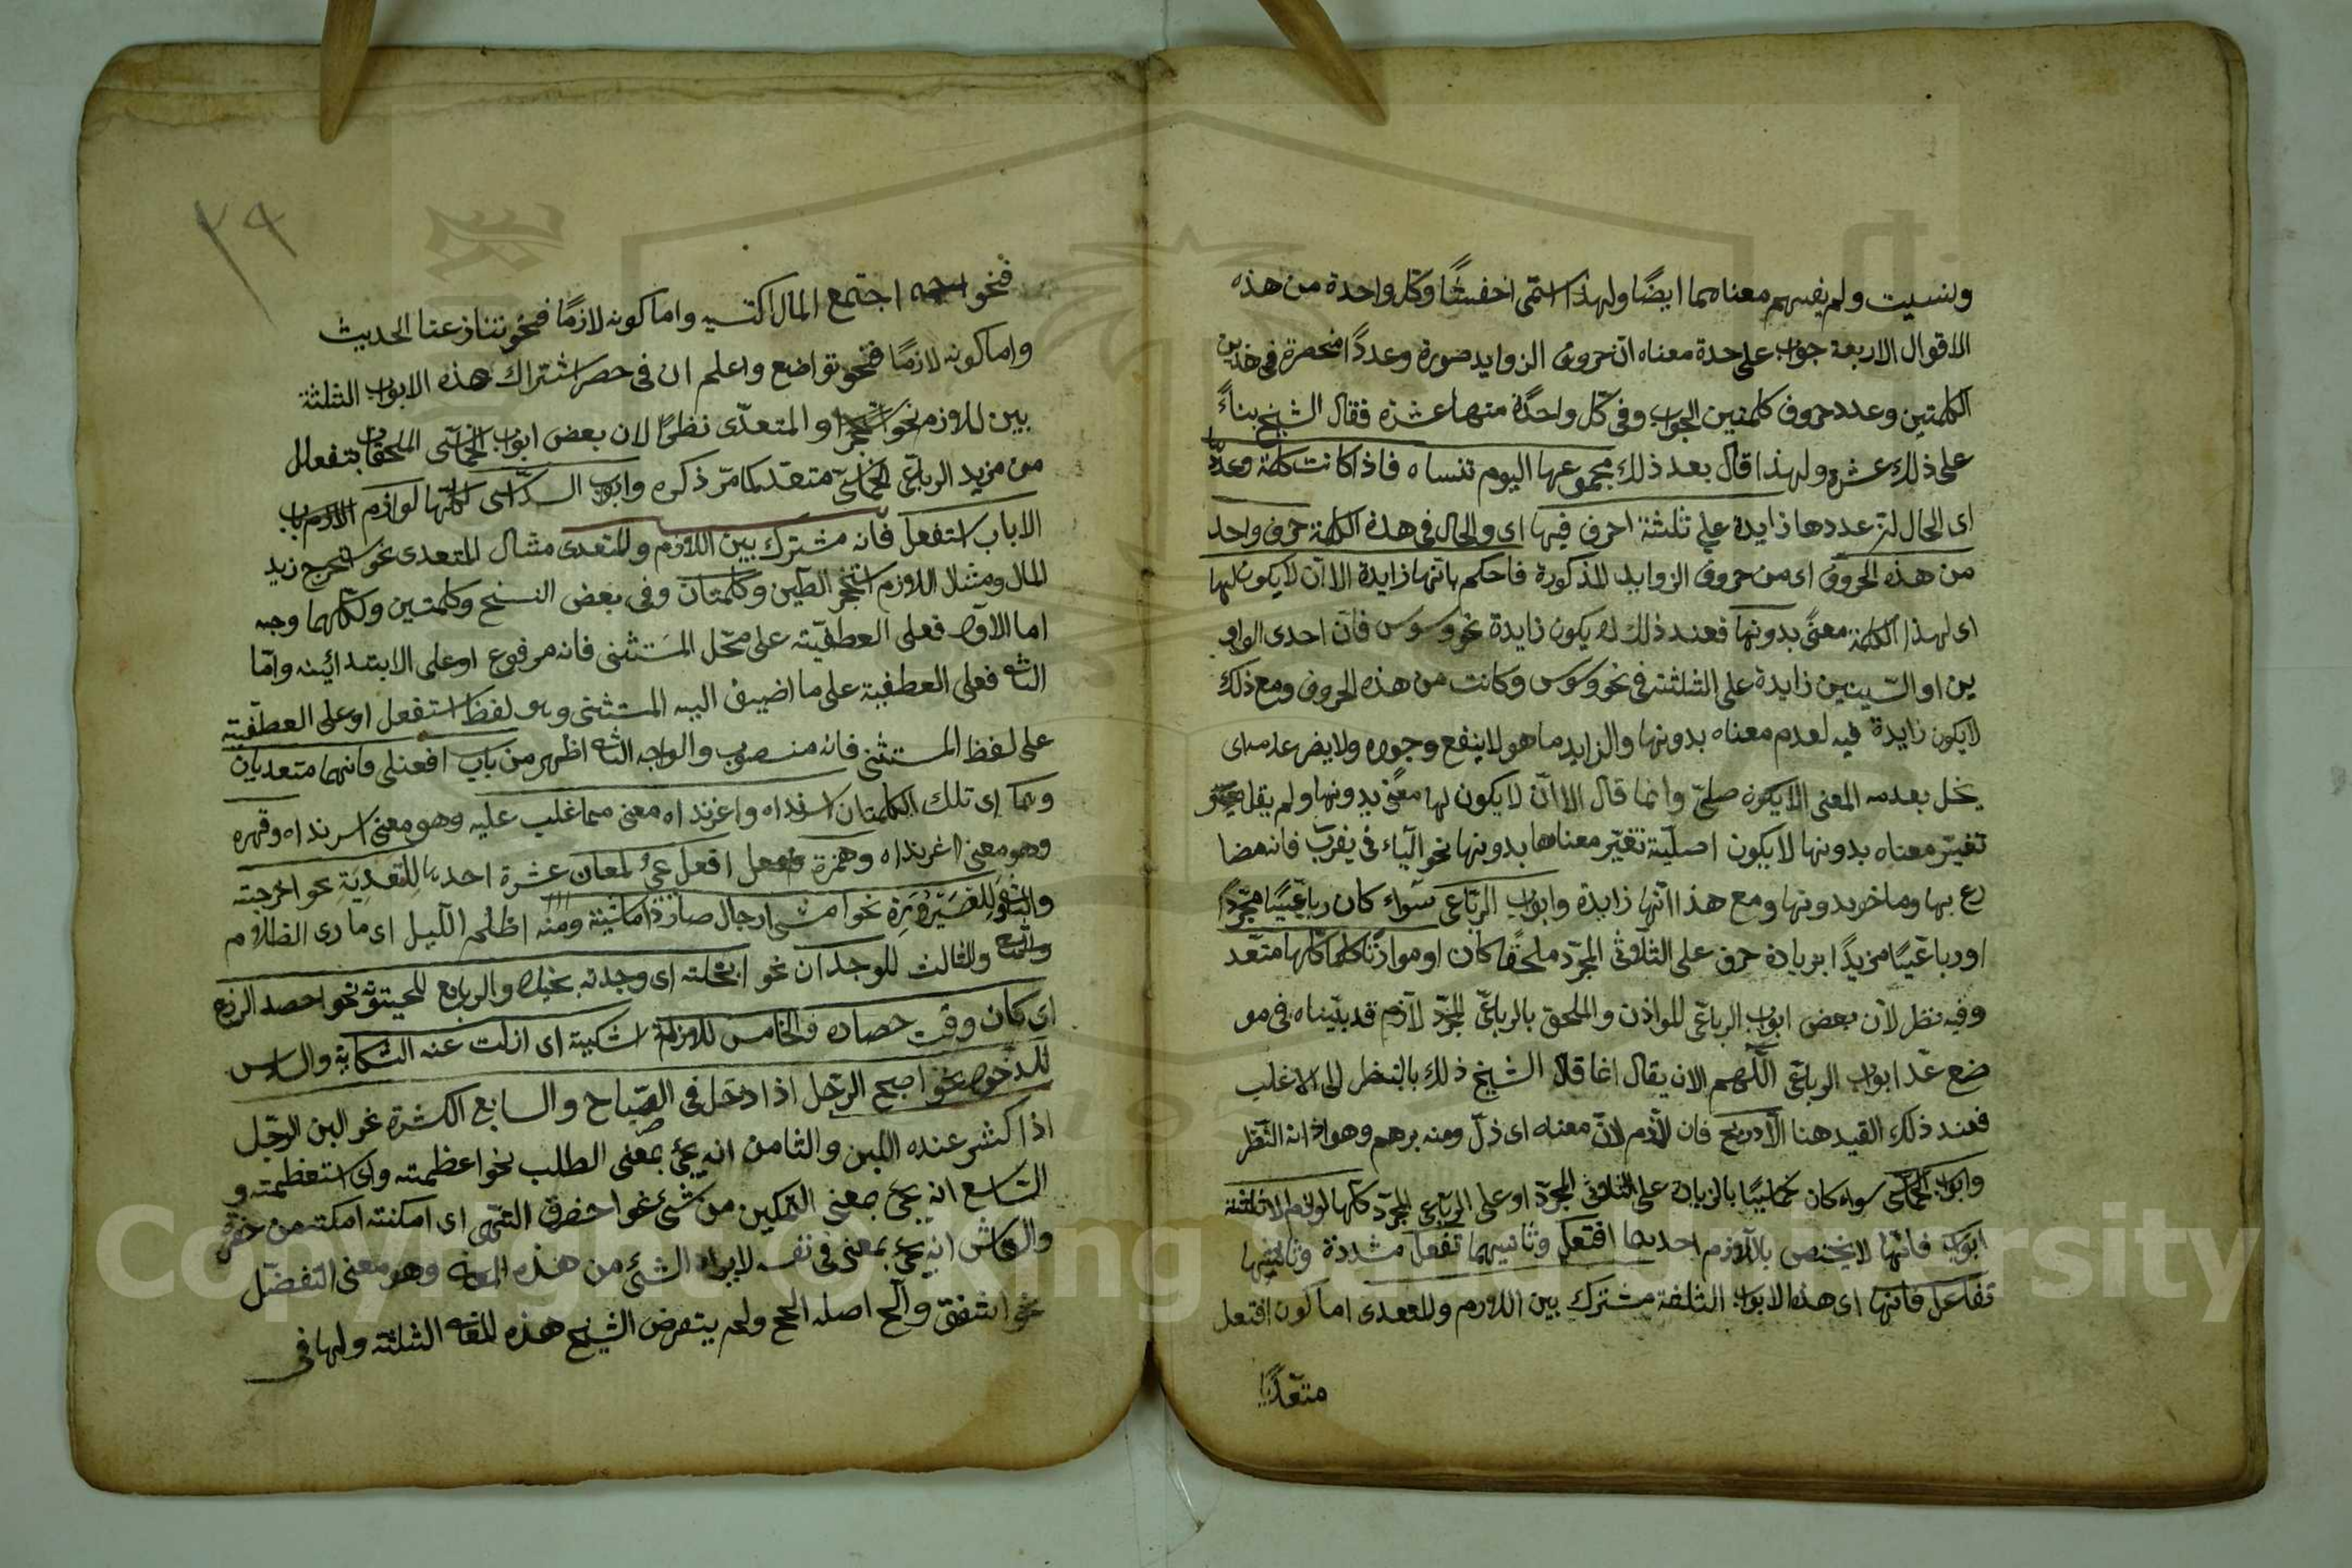 ونسيت ولم يفهم معناهما ايضًا ولهذا استمى اخفشًا وكل واحدة من هذه
الاقوال الاربعة جواب على حدة معناه انّ حروف الزوايد صورة وعددًا منحصرة فى هذين
الكلمتين وعدد حروف كلمتين الجواب وفى كلّ واحدة منها عشرة فقال الشيخ بناءً
على ذلك عشرة ولهذا قال بعد ذلك مجموعها اليوم تنساه فاذا كانت كلمة وعددها
اى الحال عددها زايدة على ثلثة احرف فيها اى والحال فى هذه الكلمة حرف واحد
من هذه الحروف اى من حروف الزوايد المذكورة فاحكم بانّها زايدة الا ان لا يكون لها
اى لهذا الكلمة معنًى بدونها فعند ذلك لا يكون زايدة نحو وسوس فانّ احدى الواو
ين او السّينين زايدة على الثلثة فى نحو وسوس وكانت من هذه الحروف ومع ذلك
لا يكون زايدة فيه لعدم معناه بدونها والزايد ما هو لا ينفع وجوده ولا يضر عدمه اى
يخل بعدمه المعنى وانما قال الا انّ لا يكون لها معنًى بدونها ولم يقل
تغيّر معناه بدونها لا يكون اصليّة تغيّر معناها بدونها نحو الياء فى يضرب فانه مضا
رع بها وماض بدونها ومع هذا انّها زايدة وابواب الرّباعى سواء كان رباعيًّا مجرّدًا
او رباعيًّا مزيدًا بزيادة حرف على الثلاثى المجرّد ملحقًا كان او موازنًا كلها متعد
وفيه نظر لانّ بعض ابواب الرباعى الموازن والملحق بالرباعىّ المجرّد لازم قد بيّناه فى مو
ضع عدّ ابواب الرباعى اللّهم الا ان يقال انما قال الشيخ ذلك بالنظر الى الاغلب
فعند ذلك القيد هنا الّا دربخ فان لازم لانّ معناه اى ذلّ ومنه برهم وهو اذا انه النّظر
وابواب الخماسى سواء كان خماسيًّا بالزيادة على الثلاثى المجرّد او على الرباعى المجرّد كلها لوازم الا ثلثة
ابواب فانّها لا يختص باللازم احديها افتعل وثانيهما تفعّل مشددة وثالثها
تفاعل فانها اى هذه الابواب الثلثة مشترك بين اللازم والمتعدى اما كون افتعل
متعدّيًا
٢٩
فنحو اجتمع المال اكتسبه واما كونه لازمًا فنحو تنازعنا الحديث
واما كونه لازمًا فنحو تواضع واعلم ان فى حصر اشتراك هذه الابواب الثلثة
بين اللازم نحو او المتعدّى نظرًا لان بعض ابواب الخماسى الملحق بتفعلل
من مزيد الرباعى الخماسى متعد كما مرّ ذكره وابواب السّداسى كلّها لوازم
الا باب استفعل فانّه مشترك بين اللازم والمتعدى مثال المتعدى نحو استخرج زيد
المال ومثال اللازم استحجر الطين وكلمتان وفى بعض النسخ وكلمتين ولكلّهما وجه
اما الاوّل فعلى العطفيّة على محلّ المستثنى فانه مرفوع او على الابتدائيّه وامّا
الثانى فعلى العطفية على ما اضيف اليه المستثنى وهو لفظ استفعل او على العطفيّة
على لفظ المستثنى فانه منصوب والوجه الثانى اظهر من باب افعنلى فانهما متعديان
وهما اى تلك الكلمتان اسرنداه واغرنداه معنى هما غلب عليه وهو معنى اسرنداه وقهره
وهو معنى اغرنداه وهمزة افعل يجئ لمعان عشرة احديها للتعدية نحو اخرجته
والثانى للصيرورة نحو امشى الرجال صار ذا ماشية ومنه اظلم الليل اى صار ذى الظلام
والثالث للوجدان نحو ابخلته اى وجدته بخيلا والرابع للحينونة نحو احصد الزرع
اى كان وقت حصاده والخامس للازالة نحو اشكيته اى ازلت عنه الشكاية والسادس
للدخول نحو اصبح الرّجل اذا دخل فى الصباح والسابع الكثرة نحو البن الرجّل
اذا كثر عنده اللبن والثامن انه يجئ بمعنى الطلب نحو اعظمته اى استعظمته و
التاسع انه يجئ بمعنى التمكين من شئ نحو احفرت النهر اى امكنته من حفره
والعاشر انه يجئ بمعنى فى نفسه لا يراد الشئ من هذه المعانى وهو معنى التفضّل
نحو اشفق والحّ اصله الحح ولم يتعرض الشيخ هذه الثلثة ولها فى